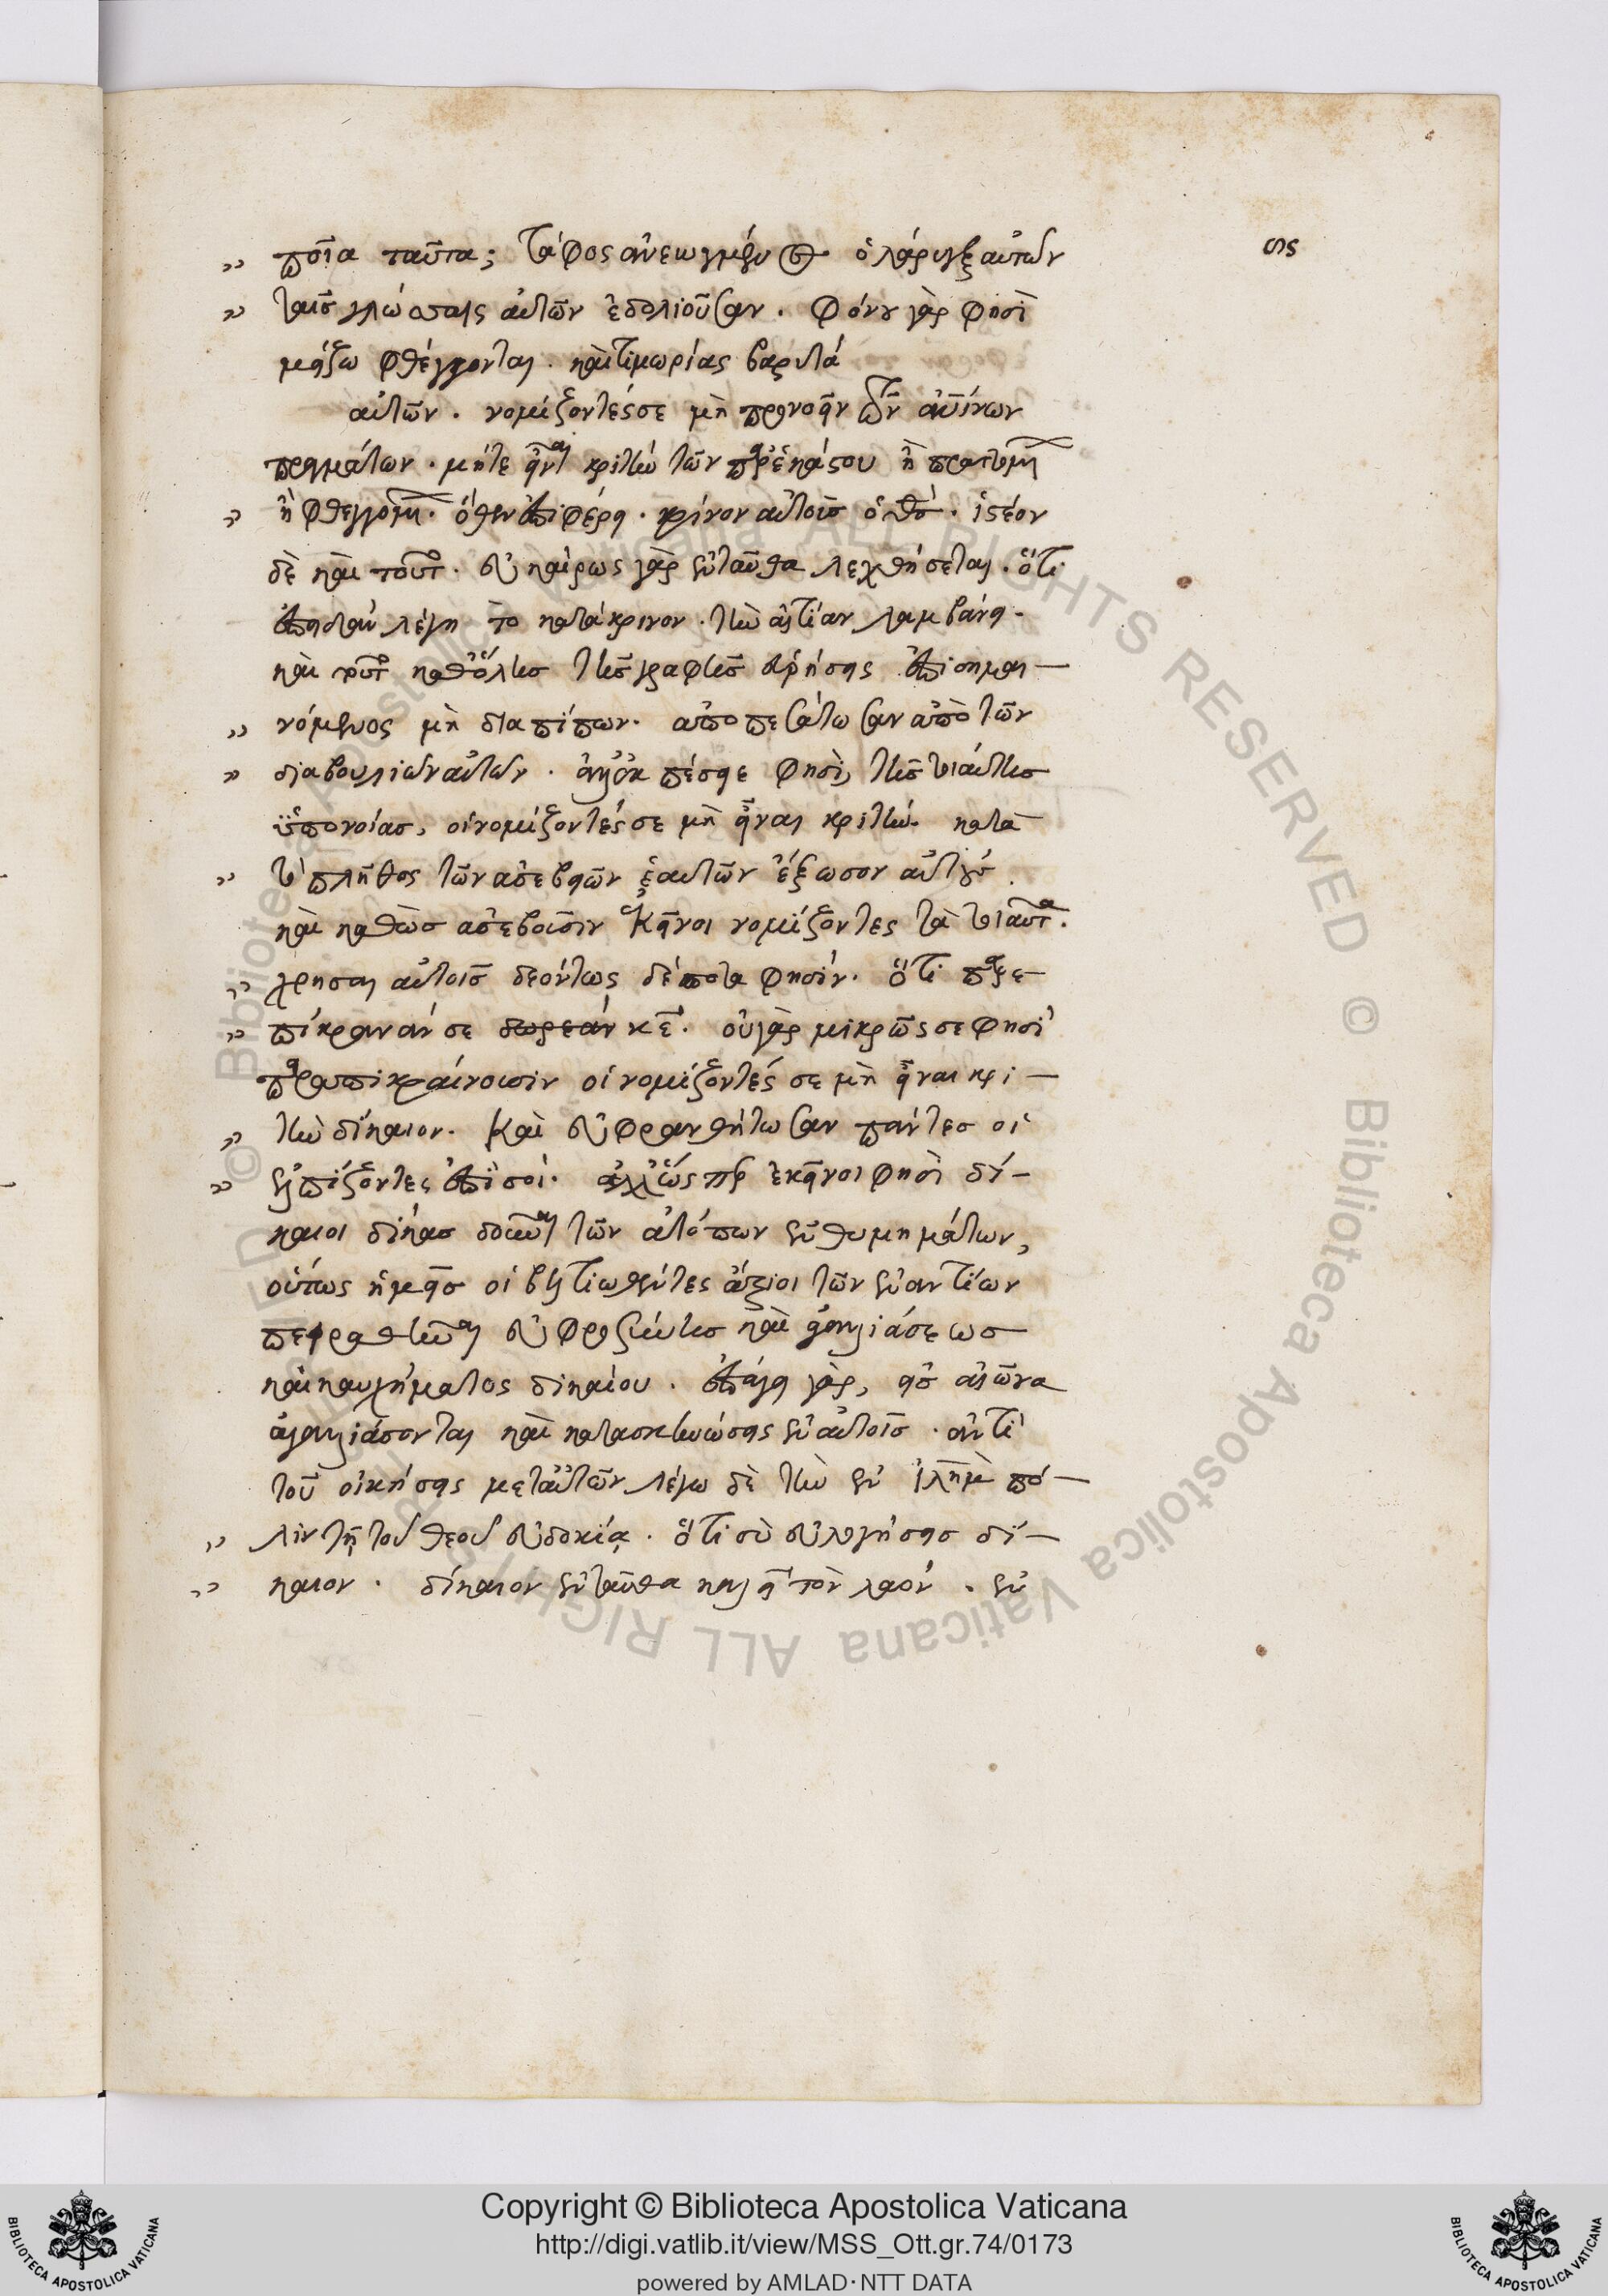 ςης
ποῖα ταῦτα; τάφος ἀνεωγμένος ὁ λάρυγξ αὐτῶν
ταῖς γλώσσαις αὐτῶν ἐδολιοῦσαν. φόνου γὰρ φησὶ
μέξω φθέγγονται. καὶ τιμωρίας βαρυτά
αὐτῶν. νομίζοντές σε μὴ προνοεῖν τῶν
πραγμάτων. μήτε εἶναι κριτὴν τῶν παρ' ἑκάστου ἢ πραττομένων
ἢ φθεγγομένων. ὅθεν ἐπιφέρει. κρίνον αὐτοὺς ὁ θς. ἰστέον
δὲ καὶ τοῦτο. εὐκαίρως γὰρ ἐνταῦθα λεχθήσεται. ὅτι
ἐπειδὰν λέγῃ τὸ κατάκρινον. τὴν αἰτίαν λαμβάνει.
καὶ τοῦτο καθόλης τῆς γραφῆς εὑρήσεις ἐπισημαι–
νόμενος μὴ διαπίπτων. ἀποπεσάτωσαν ἀπὸ τῶν
διαβουλιῶν αὐτῶν. πέσοιε φησὶ, τῆς τοιαύτης
ὑπονοίας, οἱ νομίζοντές σε μὴ εἶναι κριτήν. κατὰ
τὸ πλῆθος τῶν ἀσεβειῶν ἑαυτῶν ἔξωσον αὐτούς.
καὶ καθὼς ἀσεβοῦσιν ἐκεῖνοι νομίζοντες τὰ τοιαῦτα.
χρῆσαι αὐτοῖς δεόντως δέσποτα φησίν. ὅτι παρε–
πίκρανάν σε δωρεάν κε. οὐ γὰρ μικρῶς σε φησὶ
παραπικραίνουσιν οἱ νομίζοντές σε μὴ εἶναι κρι–
τὴν δίκαιον. Καὶ εὐφρανθήτωσαν πάντες οἱ
ἐλπίζοντες ἐπὶ σοί. ἀλλ' ὥσπερ ἐκεῖνοι φησὶ δί–
καιοι δίκας δοῦναι τῶν ἀτόπων ἐνθυμημάτων,
οὕτως ἡμεῖς οἱ βελτιωθέντες ἄξιοι τῶν ἐναντίων
πειραθῆναι εὐφροσύνης καὶ ἀγαλλιάσεως
καὶ καυχήματος δικαίου. ἐπάγει γὰρ, εἰς αἰῶνα
ἀγαλλιάσονται καὶ κατασκηνώσεις ἐν αὐτοῖς. ἀντὶ
τοῦ οἰκήσεις μετ' αὐτῶν λέγω δὲ τὴν ἐν ἱλημ πό–
λιν τῇ τοῦ θεοῦ εὐδοκίᾳ. ὅτι σὺ εὐλογήσεις δί–
καιον. δίκαιον ἐνταῦθα καλεῖ τὸν λαόν. ἐν
Copyright © Biblioteca Apostolica Vaticana
http://digi.vatlib.it/view/MSS_Ott.gr.74/0173
powered by AMLAD·NTT DATA
BIBLIOTECA APOSTOLICA VATICANA
BIBLIOTECA APOSTOLICA VATICANA